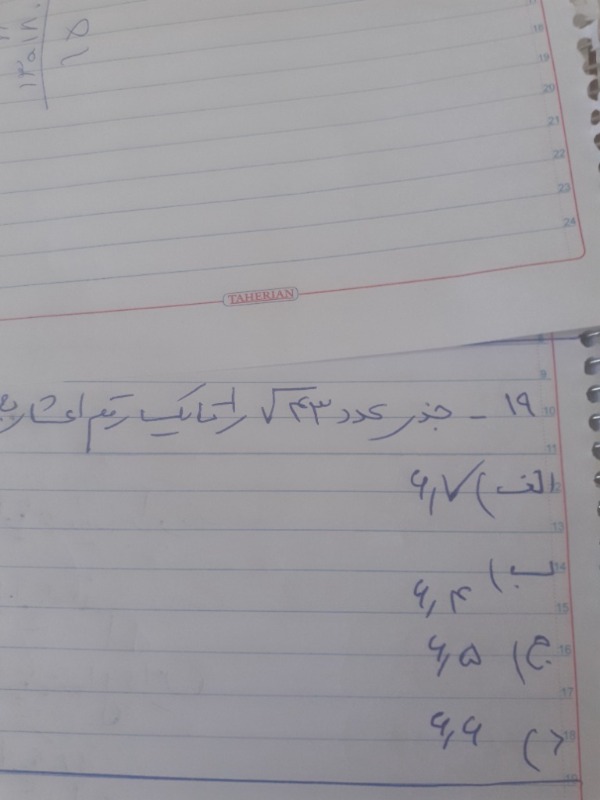 ۱۳۰۱۲۰
۱۵
18
19
20
21
22
23
24
TAHERIAN
9
۱۹ - جذر عدد √۴۳ را تا یک رقم اعشار
10
11
الف) ۶,۷
12
13
ب) ۶,۴
14
15
ج) ۶,۵
16
17
د) ۶,۶
18
19